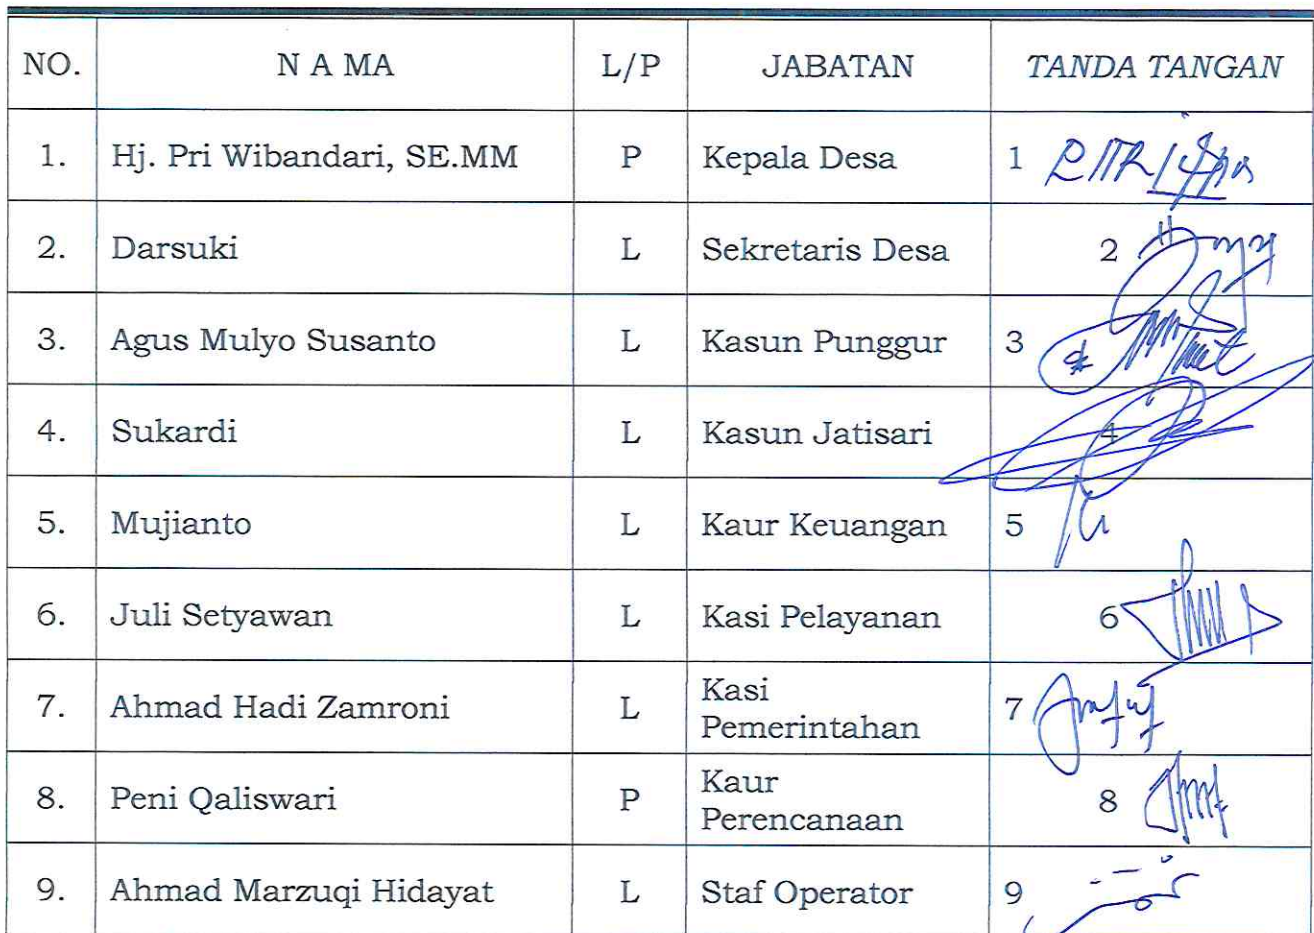 NO. N A MA L/P JABATAN TANDA TANGAN
1. Hj. Pri Wibandari, SE.MM P Kepala Desa 1
2. Darsuki L Sekretaris Desa 2
3. Agus Mulyo Susanto L Kasun Punggur 3
4. Sukardi L Kasun Jatisari 4
5. Mujianto L Kaur Keuangan 5
6. Juli Setyawan L Kasi Pelayanan 6
7. Ahmad Hadi Zamroni L Kasi 7
Pemerintahan
8. Peni Qaliswari P Kaur 8
Perencanaan
9. Ahmad Marzuqi Hidayat L Staf Operator 9